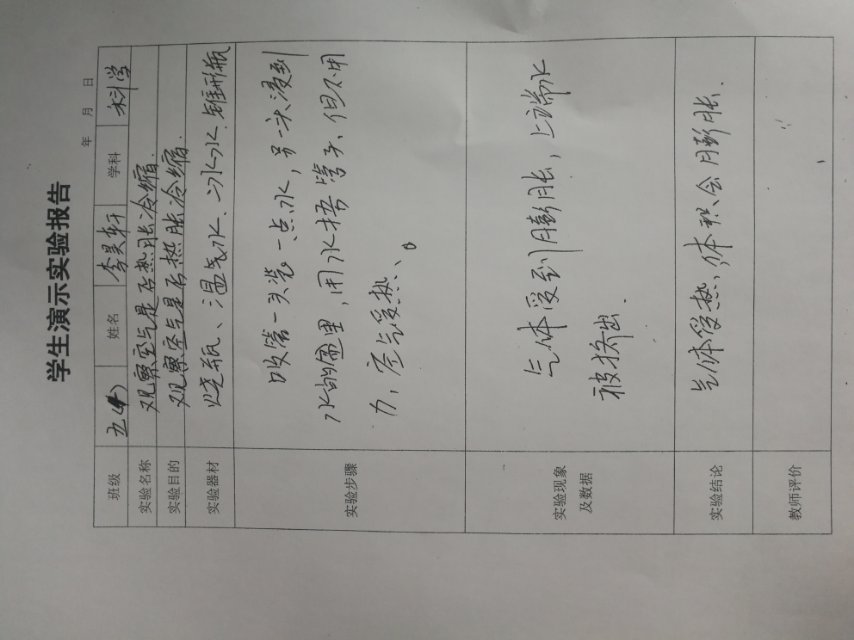 学生演示实验报告
年 月 日
班级 五(4) 姓名 李昊轩 学科 科学
实验名称 观察空气是否热胀冷缩.
实验目的 观察空气是否热胀冷缩.
实验器材 烧瓶、温气水、冰水 锥形瓶
实验步骤
吸管一头装一点水，另一头浸到
水的里，用水捂管子、但不用
力，空气受热、。
实验现象
及数据
气体受到膨胀，上端水
被挤出.
实验结论 气体受热，体积会膨胀.
教师评价